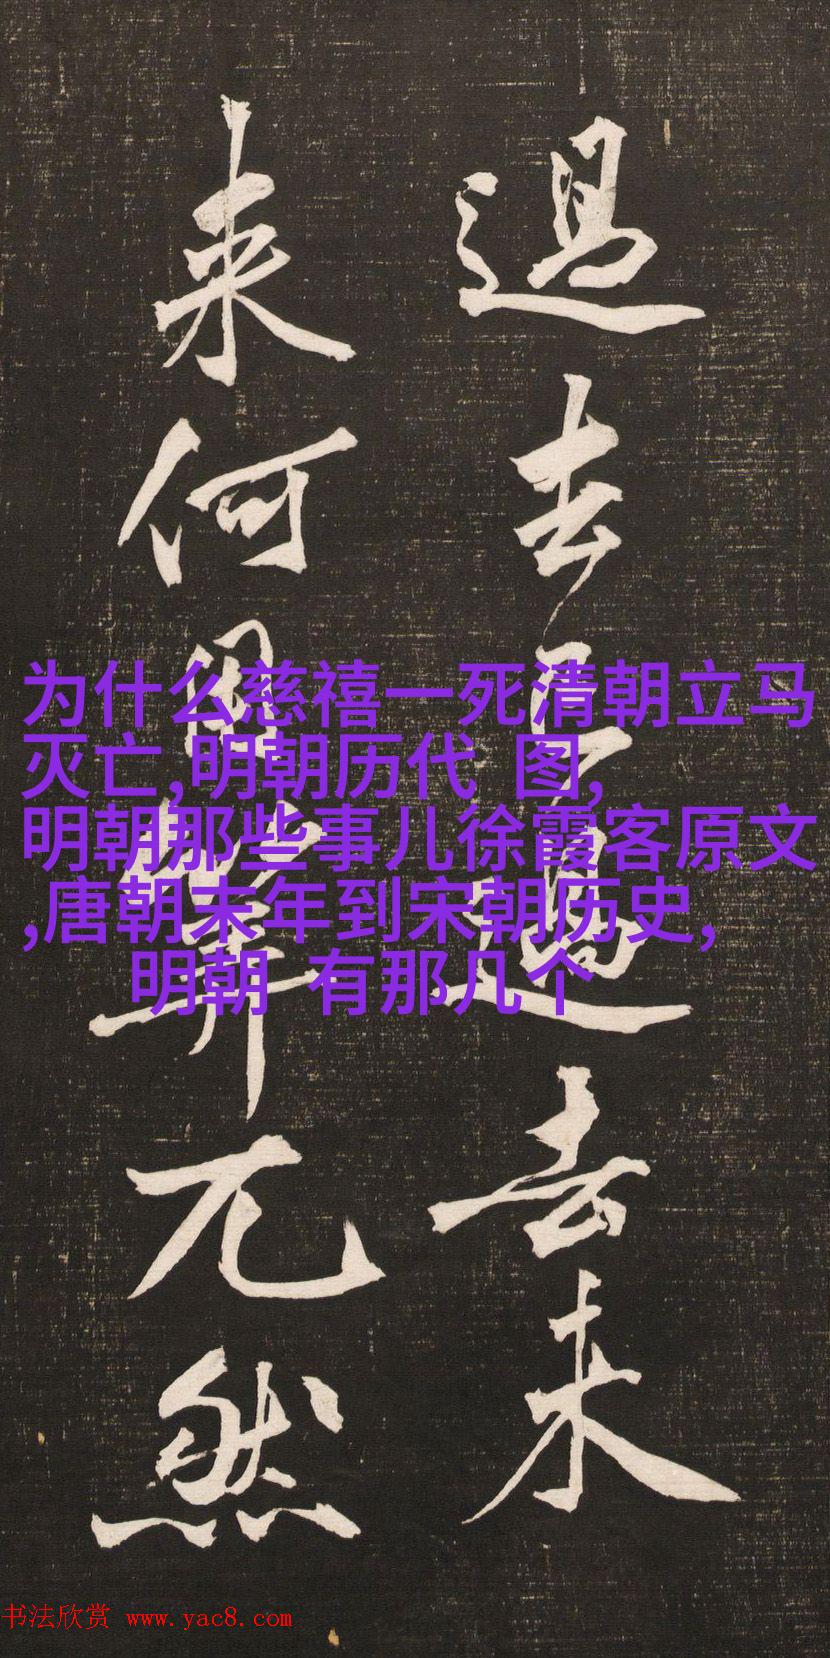 過去已過去未
来何筭兀然
为什么慈禧一死清朝立马
灭亡,明朝历代 图,
明朝那些事儿徐霞客原文
,唐朝末年到宋朝历史,
明朝 有那几个
书法欣赏 www.yac8.com